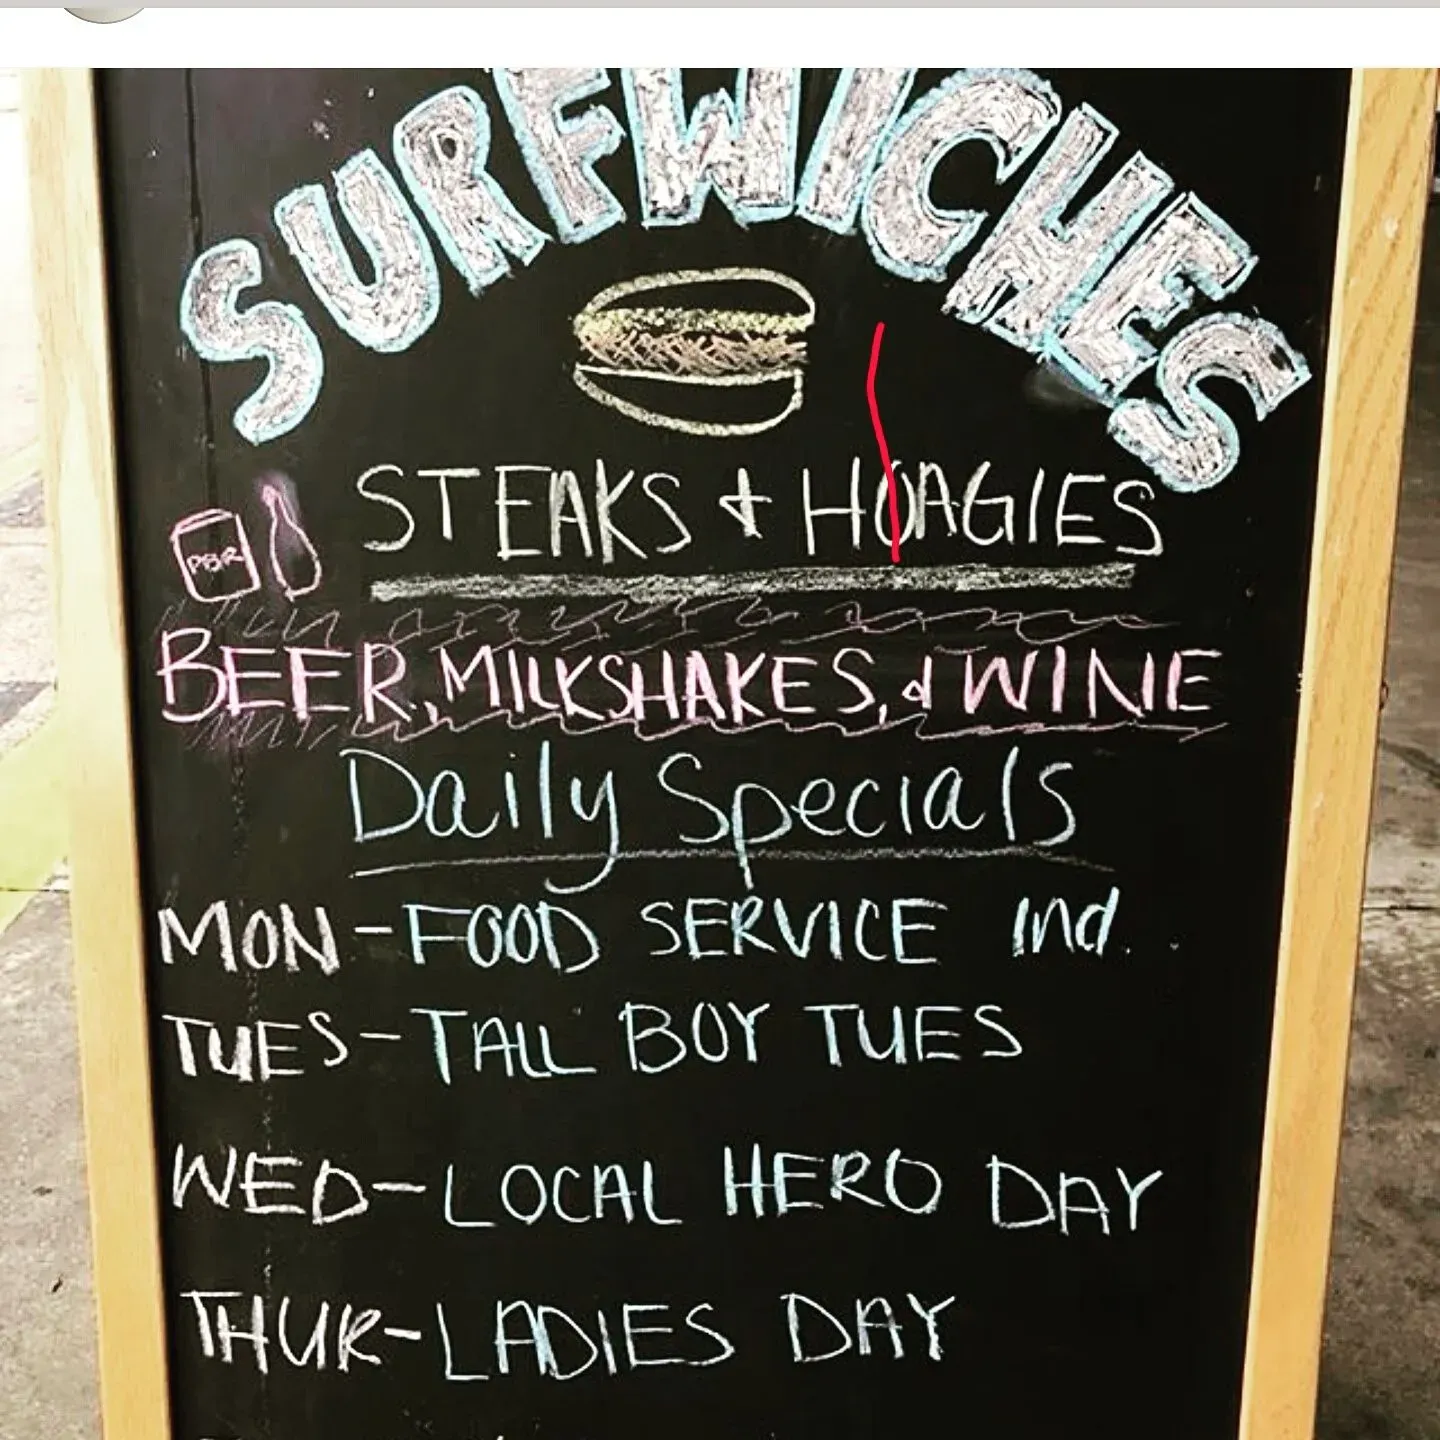 SURFWICHES
STEAKS & HOAGIES
PBR
BEER, MILKSHAKES, & WINE
Daily Specials
MON - FOOD SERVICE Ind.
TUES - TALL BOY TUES
WED - LOCAL HERO DAY
THUR - LADIES DAY